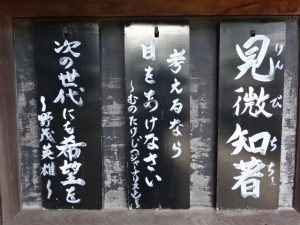 見微知著
けんびちちょ
考えるなら
目をあけなさい
〜むのたけじのジャーナリズム〜
次の世代にも希望を
〜野茂英雄〜